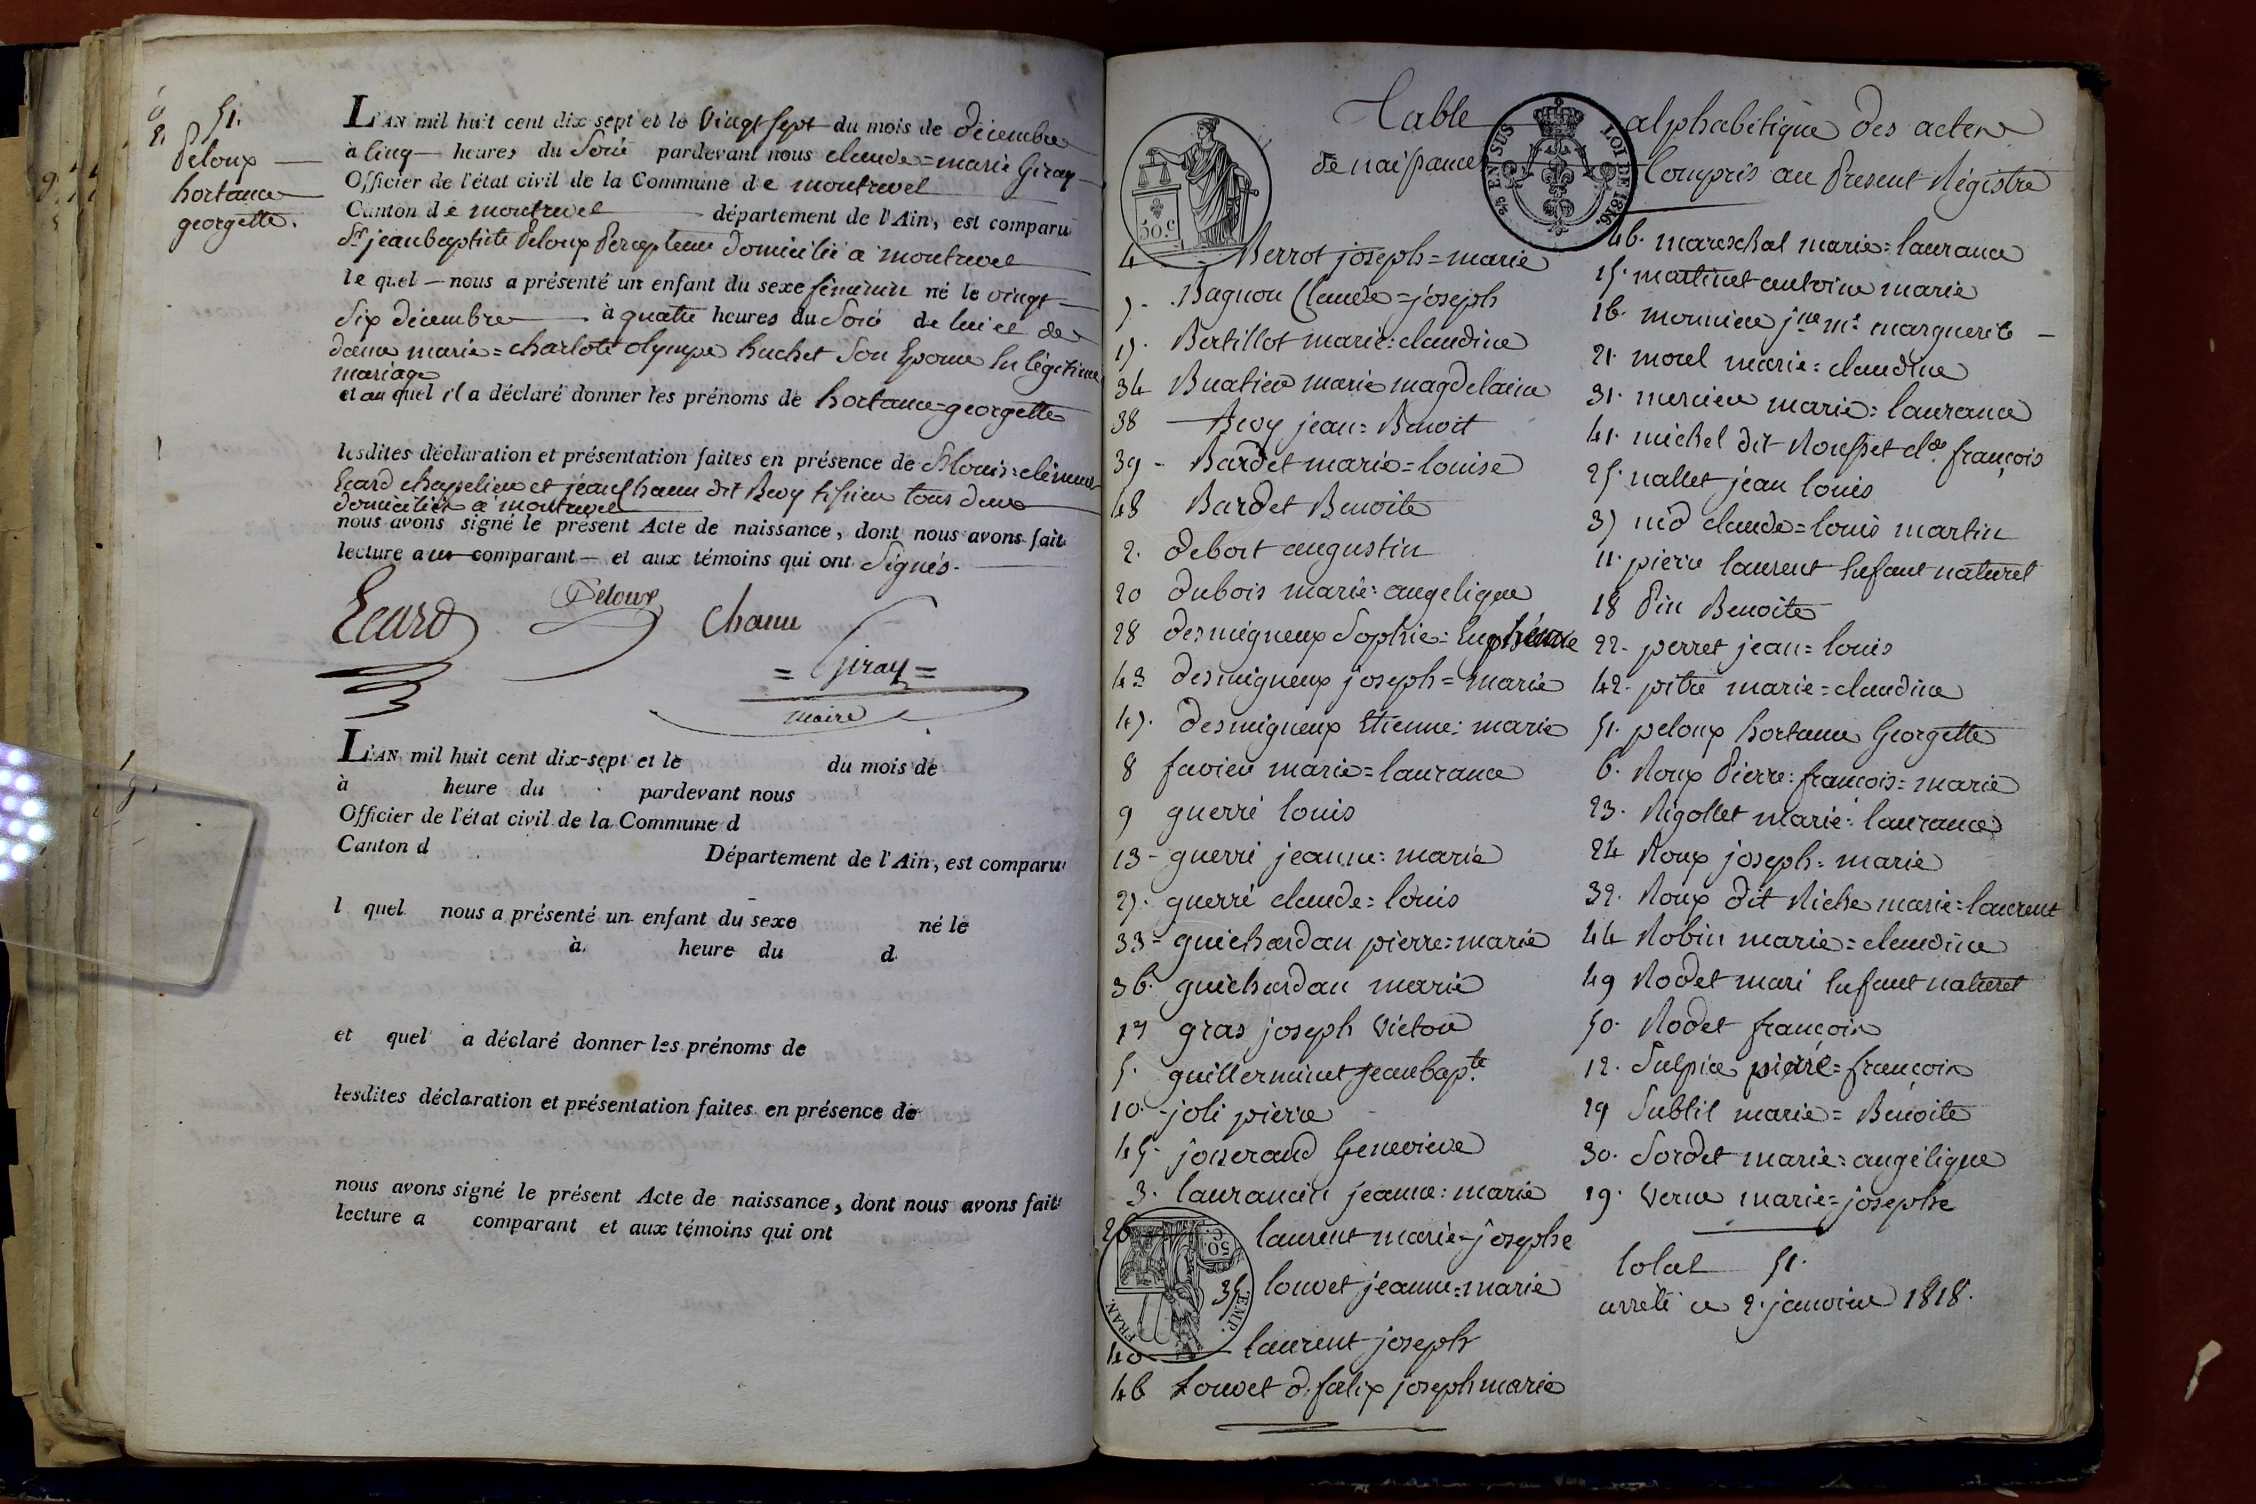 51.
Peloux
hortance
georgette.
L'AN mil huit cent dix-sept et le Vingt sept du mois de décembre
à Cinq heures du Soir pardevant nous claude=marie Giray
Officier de l'état civil de la Commune de montrevel
Canton de montrevel département de l'Ain, est comparu
Sr jean baptiste Peloux Percepteur domicilié a montrevel
le quel nous a présenté un enfant du sexe féminin né le vingt
Six décembre à quatre heures du Soir de lui et de
dame marie=charlote olympe huchet Son Epouse En légitime
mariage
et au quel il a déclaré donner les prénoms de hortance=georgette
lesdites déclaration et présentation faites en présence de Sr louis=clément
Ecard chapelier et jean Chanu dit Besy tissier tous deux
domiciliés a montrevel
nous avons signé le présent Acte de naissance, dont nous avons fait
lecture au comparant et aux témoins qui ont Signés.
Ecard Peloux Chanu
= Giray =
maire
L'AN mil huit cent dix-sept et le du mois de
à heure du pardevant nous
Officier de l'état civil de la Commune d
Canton d Département de l'Ain, est comparu
l quel nous a présenté un enfant du sexe né le
à heure du d
et quel a déclaré donner les prénoms de
lesdites déclaration et présentation faites en présence de
nous avons signé le présent Acte de naissance, dont nous avons fait
lecture a comparant et aux témoins qui ont
Table alphabétique des actes
de naissance Compris au Présent Régistre
50.c
EN SUS
LOI DE 1816.
4 Berrot joseph=marie
7. Bagnon Claude=joseph
17. Bertillot marie=claudine
34 Buatier marie magdelaine
38 Besy jean=Benoit
39 - Bardet marie=louise
48 Bardet Benoite
2. debost augustin
20 dubois marie=angelique
28 desmigneux Sophie=
43 desmigneux joseph=marie
47. desmigneux Etienne=marie
8 favier marie=laurance
9 guerré louis
13 - guerri jeanne=marie
27. guerré claude=louis
33 - guichardan pierre=marie
36. guichardan marie
gras joseph Victor
5. guillerminet jean bapte
10. joli pierre
45. josserand Genevieve
3. laurancin jeanne=marie
26 laurent marie=josephe
35 louvet jeanne=marie
FRAN. TEMP.
40 laurent joseph
46 Louvet d. félix joseph marie
46. mareschal marie=laurance
15. martinet antoine marie
16. monnier jne me marguerite
21. morel marie=claudine
31. mercier marie=laurance
41. michel dit Rousset cde françois
25. nallet jean louis
37 nid claude=louis martin
11. pierre laurent Enfant naturel
18 Pin Benoite
22. perret jean=louis
42. pitre marie=claudine
51. peloux hortance Georgette
6. Roux Pierre=francois=marie
23. Rigollet marie=laurance
24 Roux joseph=marie
32. Roux dit Riche marie=laurent
44 Robin marie=claudine
49 Rodet mari Enfant naturel
50. Rodet françois
12. Sulpice pierre=françois
29 Subtil marie=Benoite
30. Sordet marie=angélique
19. Verne marie=josephe
total 51.
arreté ce 2. janvier 1818.